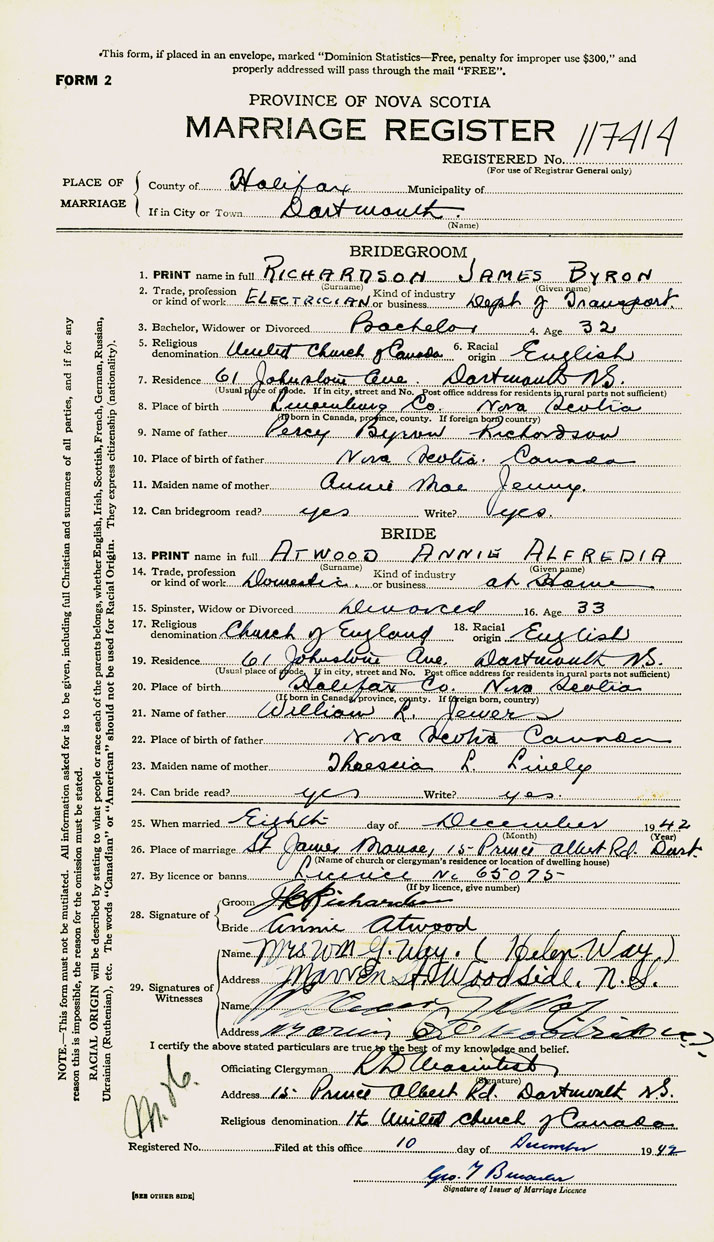 •This form, if placed in an envelope, marked "Dominion Statistics—Free, penalty for improper use $300," and
properly addressed will pass through the mail "FREE".
FORM 2
PROVINCE OF NOVA SCOTIA
MARRIAGE REGISTER
REGISTERED No. 117414
(For use of Registrar General only)
PLACE OF MARRIAGE
County of Halifax Municipality of
If in City or Town Dartmouth.
(Name)
BRIDEGROOM
1. PRINT name in full RICHARDSON JAMES BYRON
(Surname) (Given name)
2. Trade, profession or kind of work ELECTRICIAN Kind of industry or business Dept of Transport.
3. Bachelor, Widower or Divorced Bachelor 4. Age 32
5. Religious denomination United Church of Canada 6. Racial origin English
7. Residence 61 Johnstone Ave. Dartmouth N.S.
(Usual place of abode. If in city, street and No. Post office address for residents in rural parts not sufficient)
8. Place of birth Lunenburg Co. Nova Scotia
(If born in Canada, province, county. If foreign born, country)
9. Name of father Percy Byron Richardson
10. Place of birth of father Nova Scotia. Canada
11. Maiden name of mother Annie Mae Jenny.
12. Can bridegroom read? yes Write? yes.
BRIDE
13. PRINT name in full ATWOOD ANNIE ALFREDIA
(Surname) (Given name)
14. Trade, profession or kind of work Domestic. Kind of industry or business at Home
15. Spinster, Widow or Divorced Divorced 16. Age 33
17. Religious denomination Church of England 18. Racial origin English
19. Residence 61 Johnstone Ave. Dartmouth N.S.
(Usual place of abode. If in city, street and No. Post office address for residents in rural parts not sufficient)
20. Place of birth Halifax Co. Nova Scotia
(If born in Canada, province, county. If foreign born, country)
21. Name of father William R. Jewers
22. Place of birth of father Nova Scotia Canada
23. Maiden name of mother L. Lively
24. Can bride read? yes Write? yes.
25. When married Eighth day of December 1942
(Month) (Year)
26. Place of marriage St James Manse, 15 Prince Albert Rd. Dart.
(Name of church or clergyman's residence or location of dwelling house)
27. By licence or banns Licence No 65075
(If by licence, give number)
28. Signature of
Groom Richardson
Bride Annie Atwood
29. Signatures of Witnesses
Name Mrs Wm J. Way. (Helen Way.)
Address St Woodside. N.S.
Name Way
Address
I certify the above stated particulars are true to the best of my knowledge and belief.
Officiating Clergyman
(Signature)
Address 15 Prince Albert Rd. Dartmouth N.S.
Religious denomination United Church of Canada
Registered No. Filed at this office 10 day of December 1942
Geo. T
Signature of Issuer of Marriage Licence
[SEE OTHER SIDE]
NOTE.—This form must not be mutilated. All information asked for is to be given, including full Christian and surnames of all parties, and if for any
reason this is impossible, the reason for the omission must be stated.
RACIAL ORIGIN will be described by stating to what people or race each of the parents belongs, whether English, Irish, Scottish, French, German, Russian,
Ukrainian (Ruthenian), etc. The words "Canadian" or "American" should not be used for Racial Origin. They express citizenship (nationality).